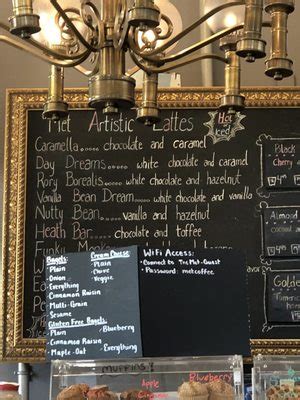 Met Artistic Lattes
Hot or Iced
Caramella..... chocolate and caramel
Day Dreams.... white chocolate and caramel
Rory Borealis.. white chocolate and hazelnut
Vanilla Bean Dream..... white chocolate and vanilla
Nutty Bean..... vanilla and hazelnut
Heath Bar..... chocolate and toffee
Funky
Black
Cherry
Almond
Golden
Bagels:
-Plain
-Onion
-Everything
-Cinnamon Raisin
-Multi-Grain
-Sesame
Gluten Free Bagels:
-Plain
-Blueberry
-Cinnamon Raisin
-Maple-Oat
-Everything
Cream Cheese:
-Plain
-Chive
-Veggie
WiFi Access:
•Connect to The Met-Guest
•Password: metcoffee
Muffins
Apple
Cinnamon
Blueberry